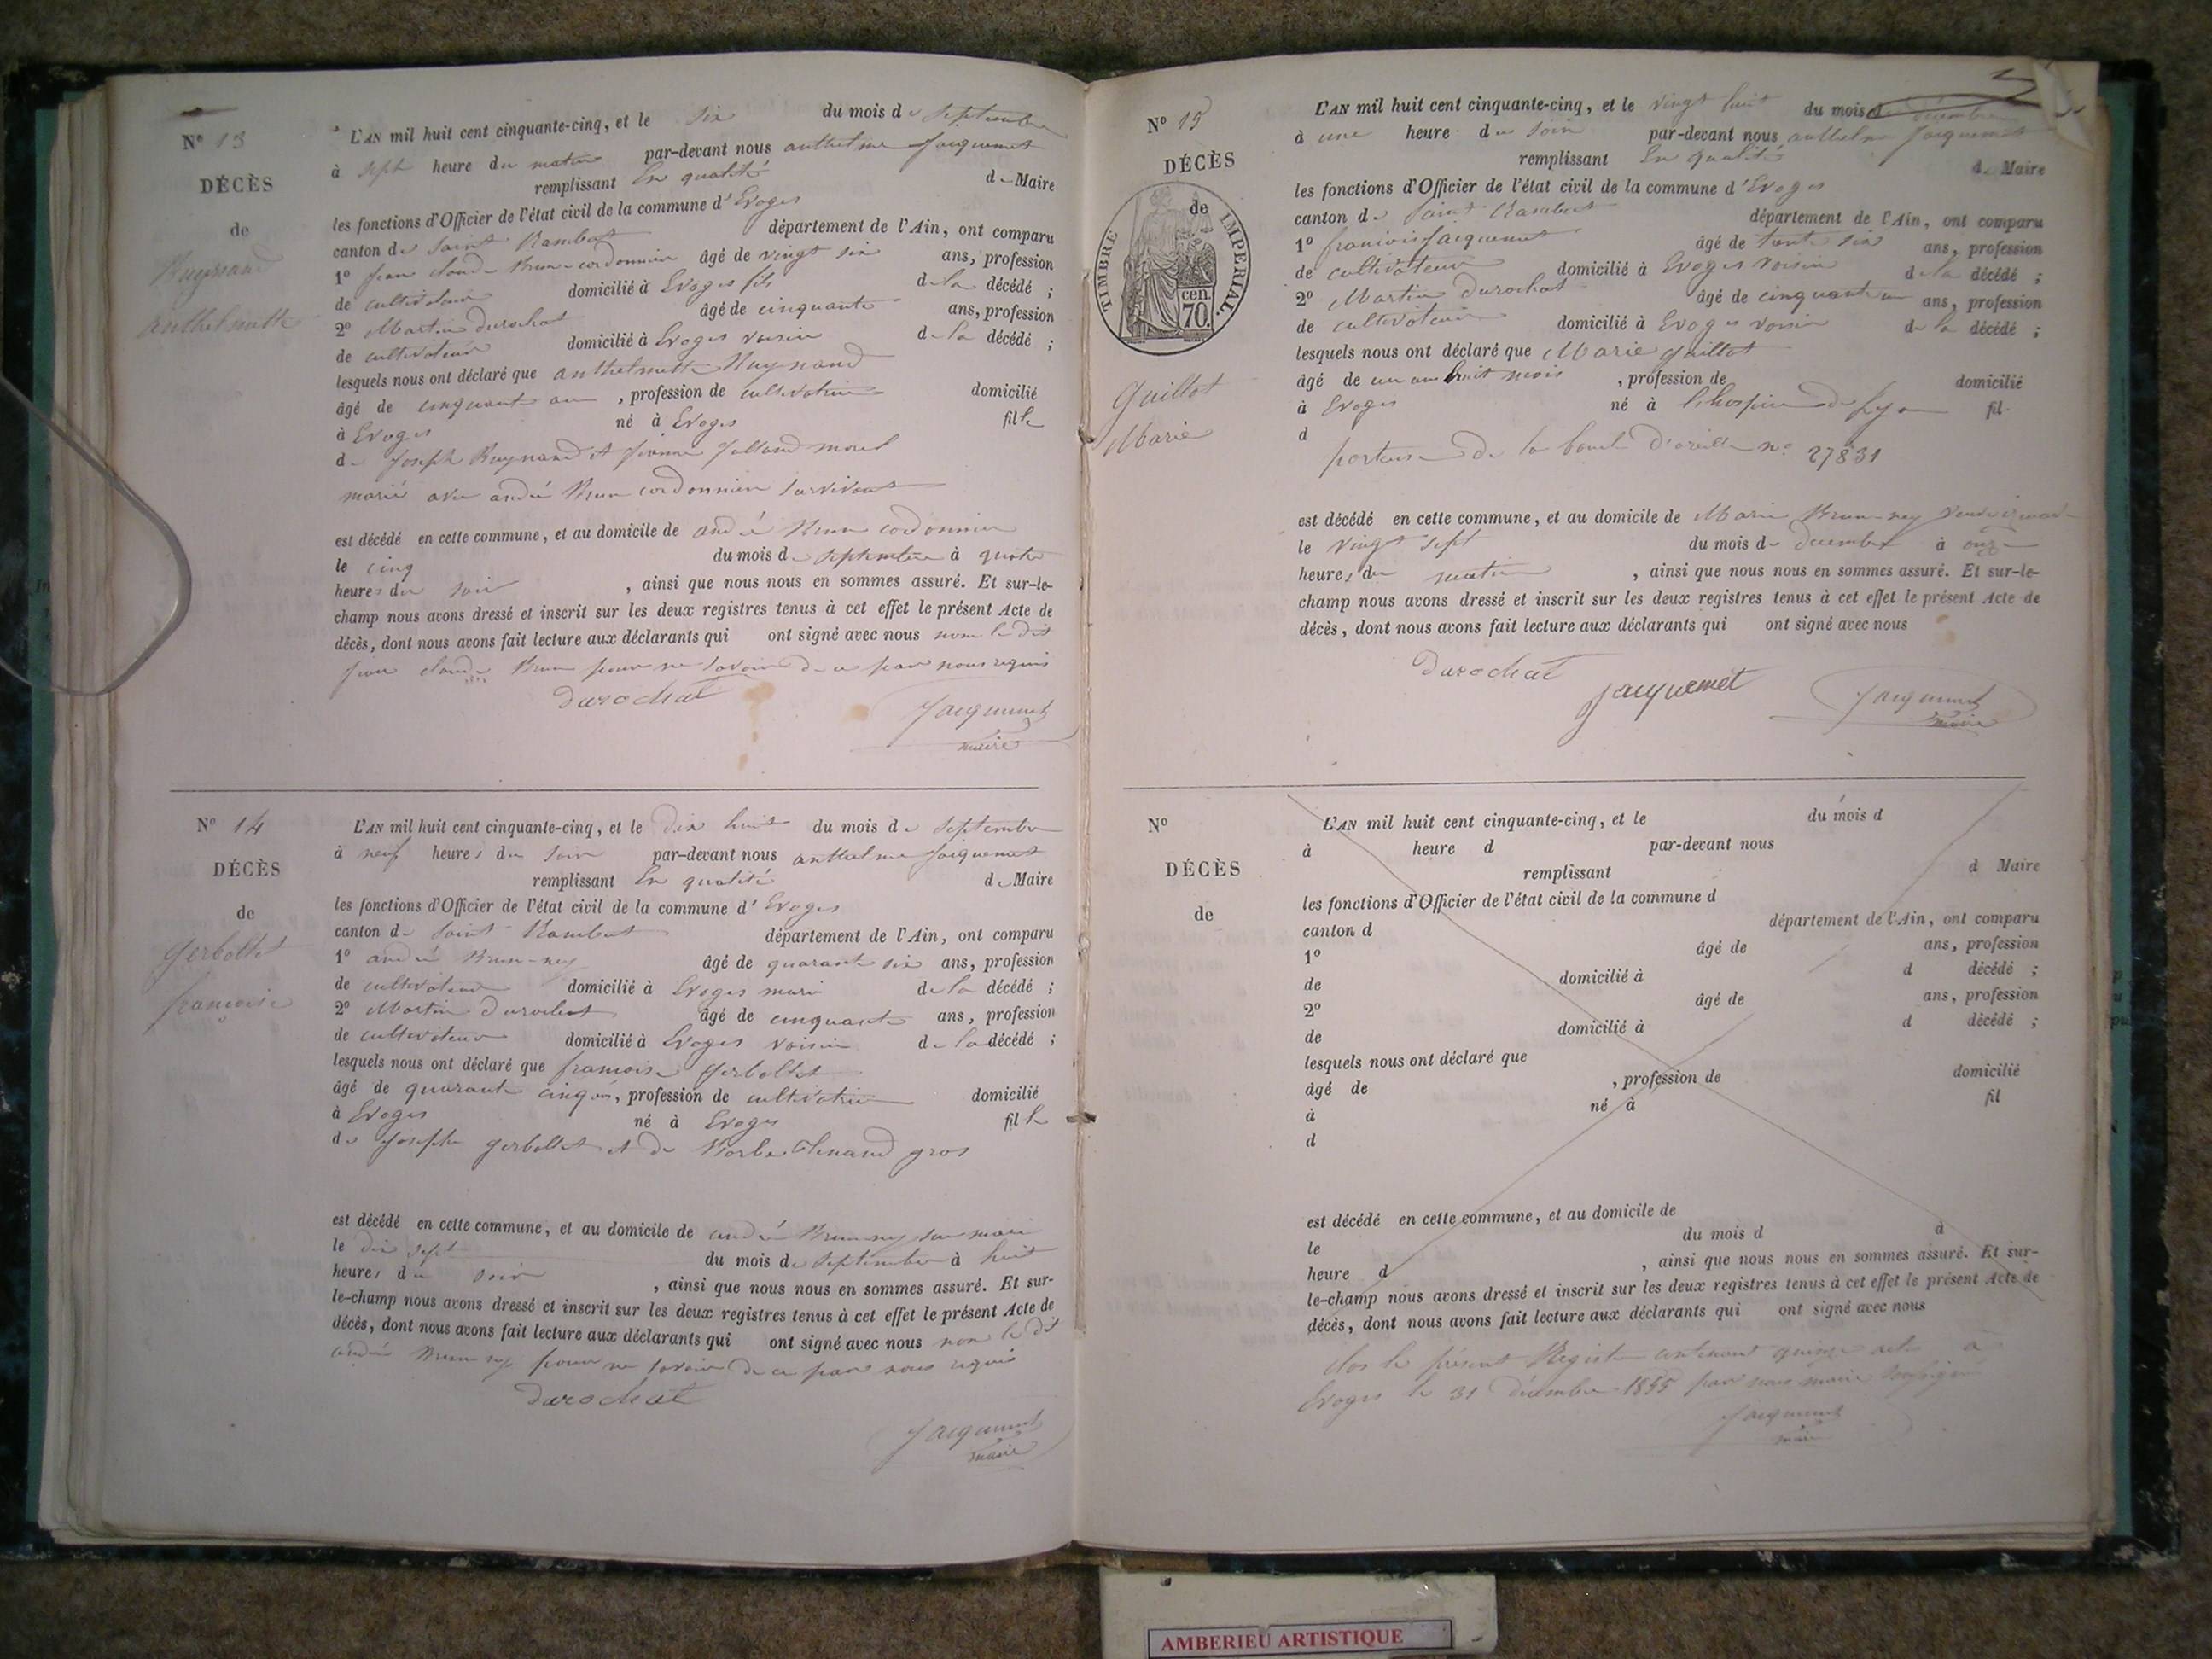 N° 13
DÉCÈS
de
Reynaud
anthelmette
L'AN mil huit cent cinquante-cinq, et le six du mois de septembre
à sept heure du matin par-devant nous anthelme Jacquemet
remplissant En qualité de Maire
les fonctions d'Officier de l'état civil de la commune d'Evoges
canton de Saint Rambert département de l'Ain, ont comparu
1° Jean Claude Brun-cordonnier âgé de vingt six ans, profession
de cultivateur domicilié à Evoges fils de la décédé ;
2° Martin Durochat âgé de cinquante ans, profession
de cultivateur domicilié à Evoges voisin de la décédé ;
lesquels nous ont déclaré que anthelmette Reynaud
âgé de cinquante ans, profession de cultivatrice domicilié
à Evoges né à Evoges fille
de Joseph Reynaud et
marié avec andré Brun cordonnier survivant
est décédé en cette commune, et au domicile de andré Brun cordonnier
le cinq du mois de septembre à quatre
heures du soir, ainsi que nous nous en sommes assuré. Et sur-le-
champ nous avons dressé et inscrit sur les deux registres tenus à cet effet le présent Acte de
décès, dont nous avons fait lecture aux déclarants qui ont signé avec nous non le dit
Jean Claude Brun pour ne savoir de ce par nous requis
Durochat
Jacquemet
maire
N° 14
DÉCÈS
de
Gerbollet
françoise
L'AN mil huit cent cinquante-cinq, et le dix huit du mois de septembre
à neuf heures du soir par-devant nous anthelme Jacquemet
remplissant En qualité de Maire
les fonctions d'Officier de l'état civil de la commune d'Evoges
canton de Saint Rambert département de l'Ain, ont comparu
1° andré Brun-ney âgé de quarante six ans, profession
de cultivateur domicilié à Evoges mari de la décédé ;
2° Martin Durochat âgé de cinquante ans, profession
de cultivateur domicilié à Evoges voisin de la décédé ;
lesquels nous ont déclaré que françoise Gerbollet
âgé de quarante cinq ans, profession de cultivatrice domicilié
à Evoges né à Evoges fille
de Joseph Gerbollet et de gros
est décédé en cette commune, et au domicile de andré Brun-ney son mari
le dix sept du mois de septembre à huit
heures du soir, ainsi que nous nous en sommes assuré. Et sur-
le-champ nous avons dressé et inscrit sur les deux registres tenus à cet effet le présent Acte de
décès, dont nous avons fait lecture aux déclarants qui ont signé avec nous non le dit
andré Brun-ney pour ne savoir de ce par nous requis
Durochat
Jacquemet
maire
N° 15
DÉCÈS
de
TIMBRE IMPERIAL
70 cen.
Guillot
Marie
L'AN mil huit cent cinquante-cinq, et le vingt huit du mois de décembre
à une heure du soir par-devant nous anthelme Jacquemet
remplissant En qualité de Maire
les fonctions d'Officier de l'état civil de la commune d'Evoges
canton de Saint Rambert département de l'Ain, ont comparu
1° françois Jacquemet âgé de trente six ans, profession
de cultivateur domicilié à Evoges voisin de la décédé ;
2° Martin Durochat âgé de cinquante un ans, profession
de cultivateur domicilié à Evoges voisin de la décédé ;
lesquels nous ont déclaré que Marie Guillot
âgé de un an huit mois, profession de domicilié
à Evoges né à l'hospice de Lyon fil
d
porteuse de la boucle d'oreille n° 27831
est décédé en cette commune, et au domicile de Marie Brun-ney
le vingt sept du mois de decembre à onze
heures du matin, ainsi que nous nous en sommes assuré. Et sur-le-
champ nous avons dressé et inscrit sur les deux registres tenus à cet effet le présent Acte de
décès, dont nous avons fait lecture aux déclarants qui ont signé avec nous
Durochat
jacquemet
Jacquemet
maire
N°
DÉCÈS
de
L'AN mil huit cent cinquante-cinq, et le du mois d
à heure d par-devant nous
remplissant d Maire
les fonctions d'Officier de l'état civil de la commune d
canton d département de l'Ain, ont comparu
1° âgé de ans, profession
de domicilié à d décédé ;
2° âgé de ans, profession
de domicilié à d décédé ;
lesquels nous ont déclaré que
âgé de , profession de domicilié
à né à fil
d
est décédé en cette commune, et au domicile de
le du mois d à
heure d , ainsi que nous nous en sommes assuré. Et sur-
le-champ nous avons dressé et inscrit sur les deux registres tenus à cet effet le présent Acte de
décès, dont nous avons fait lecture aux déclarants qui ont signé avec nous
Clos le présent Registre contenant quinze actes a
Evoges le 31 décembre 1855 par nous maire soussigné
Jacquemet
maire
AMBERIEU ARTISTIQUE